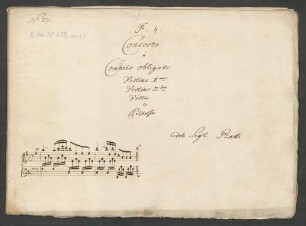 Concerto
a
Cembalo obligato
Violino 1mo
Violino 2do
Viola
e
Basso
Del Sigr Platti